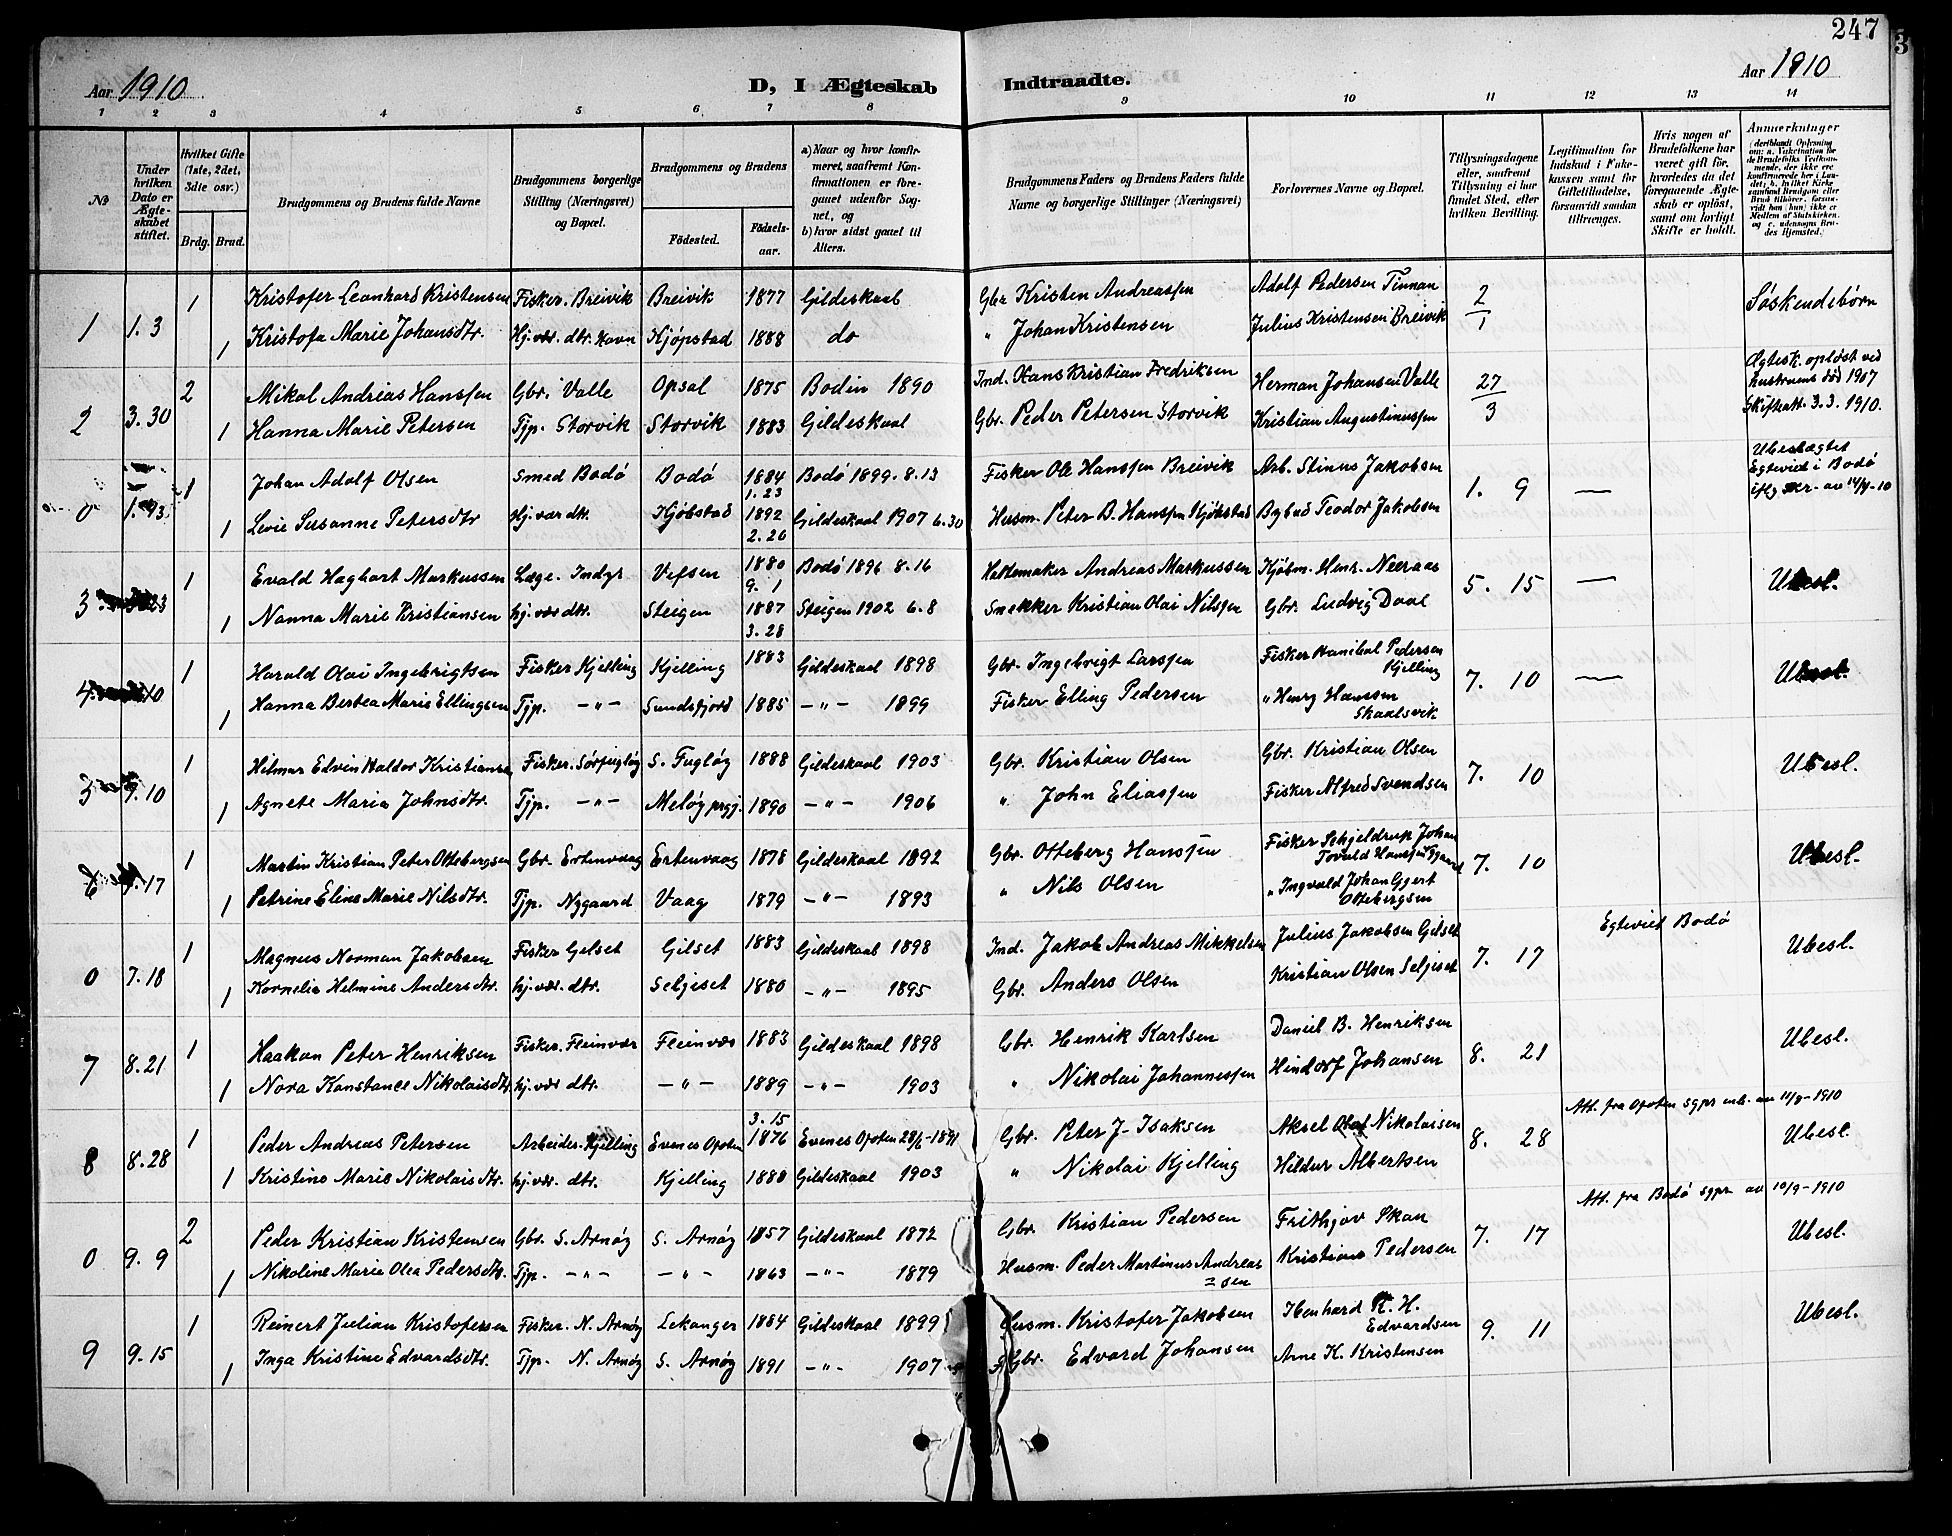 247
Aar 1910
D, I Ægteskab Indtraadte.
Aar 1910
1 2 3 4 5 6 7 8 9 10 11 12 13 14
No
Under hvilken Dato er Ægteskabet stiftet.
Hvilket Gifte (1ste, 2det, 3dte osv.)
Brdg. Brud.
Brudgommens og Brudens fulde Navne
Brudgommens borgerlige Stilling (Næringsvei) og Bopæl.
Brudgommens og Brudens
Födested. Födselsaar.
a) Naar og hvor konfirmeret, saafremt Konfirmationen er foregaaet udenfor Sognet, og
b) hvor sidst gaaet til Alters.
Brudgommens Faders og Brudens Faders fulde Navne og borgerlige Stillinger (Næringsvei)
Forlovernes Navne og Bopæl.
Tillysningsdagene eller, saafremt Tillysning ei har fundet Sted, efter hvilken Bevilling.
Legitimation for Indskud i Enkekassen samt for Giftetilladelse, forsaavidt saadan tiltrænges.
Hvis nogen af Brudefolkene har været gift för, hvorledes da det foregaaende Ægteskab er oplöst, samt om lovligt Skifte er holdt.
Anmærkninger
1 1.3 1 Kristofer Leonhard Kristensen Fisker. Breivik Breivik 1877 Gildeskaal Gbr Kristen Andreassen Adolf Pedersen Tinnan 2/1 Søskendebørn
1 Kristofa Marie Johansdtr. Hj.vær. dtr. Havn Kjøpstad 1888 do " Johan Kristensen Julius Kristensen Breivik
2 3.30 2 Mikal Andreas Hanssen Gbr. Valle Opsal 1875 Bodin 1890 Ind. Hans Kristian Fredriksen Herman Johansen Valle 27/3 Ægtesk. opløst ved hustruens død 1907
1 Hanna Marie Petersen Tjp. Storvik Storvik 1883 Gildeskaal Gbr. Peder Petersen Storvik Kristian Augustinussen Skifteatt. 3.3. 1910.
0 1 Johan Adolf Olsen Smed Bodö Bodö 1884 1.23 Bodö 1899. 8.13 Fisker Ole Hanssen Breivik Arb. Stinus Jakobsen 1. 9 — Ubeslægtet Egteviet i Bodö
1 Levie Susanne Petersdtr Hj.vær dtr. Kjöbstad 1892 2.26 Gildeskaal 1907 6.30 Husm. Peter B. Hanssen Kjöbstad Bybud Teodor Jakobsen
3 23 1 Evald Haghart Markussen Læge. Indyr Vefsen 1880 9.1 Bodö 1896 8.16 Hattemaker Andreas Markussen Kjöbm. Henr. Neeraas 5. 15 — Ubesl.
1 Nanna Marie Kristiansen hj.vær dtr. Steigen 1887 3.28 Steigen 1902 6.8 Snekker Kristian Olai Nilssen Gbr. Ludvig Daal
4 10 1 Harald Olai Ingebrigtsen Fisker Kjelling Kjelling 1883 Gildeskaal 1898 Gbr. Ingebrigt Larssen Fisker Hanibal Pedersen Kjelling 7. 10 — Ubesl.
1 Hanna Bertea Marie Ellingsen Tjp. —"— Sundsfjord 1885 —"— 1899 Fisker Elling Pedersen " Henry Hanssen Skaalsvik
5 7.10 1 Hilmar Edvin Haldor Kristiansen Fisker. Sörfugløy S. Fugløy 1888 Gildeskaal 1903 Gbr. Kristian Olsen Gbr. Kristian Olsen 7. 10 Ubesl.
1 Agnete Maria Johnsdtr. Tjp. —"— Meløy prgj. 1890 —"— 1906 " John Eliassen Fisker Alfred Svendsen
6 7.17 1 Martin Kristian Peter Ottebergsen Gbr. Ertenvaag Ertenvaag 1878 Gildeskaal 1892 Gbr. Otteberg Hanssen Fisker Schjeldrup Johan Torvald Hanssen 7. 10 Ubesl.
1 Petrine Eline Marie Nilsdtr. Tjp. Nygaard Vaag 1879 —"— 1893 " Nils Olsen " Ingvald Johan Gjert Ottebergsen
0 7.18 1 Magnus Norman Jakobsen Fisker Gilset Gilset 1883 Gildeskaal 1898 Ind. Jakob Andreas Mikkelsen Julius Jakobsen Gilset 7. 17 Egteviet Bodö Ubesl.
1 Kornelia Helmine Andersdtr. hj.vær. dtr. Seljeset 1880 —"— 1895 Gbr. Anders Olsen Kristian Olsen Seljeset
7 8.21 1 Haakon Peter Henriksen Fisker. Fleinvær Fleinvær 1883 Gildeskaal 1898 Gbr. Henrik Karlsen Daniel B. Henriksen 8. 21 Ubesl.
1 Nora Konstance Nikolaisdtr. hj.vær dtr. —"— 1889 —"— 1903 " Nikolai Johannessen Hindorf Johansen
8 8.28 1 Peder Andreas Petersen Arbeider. Kjelling Evenes Ofoten 3.15 1876 Evenes Ofoten 28/6-1891 Gbr. Peter J. Isaksen Aksel Olaf Nikolaisen 8. 28 Att. fra Ofoten sgpr Ubesl.
1 Kristine Marie Nikolaisdtr. hj.vær. dtr. Kjelling 1888 Gildeskaal 1903 " Nikolai Kjelling Hildur Albertsen
0 9.9 2 Peder Kristian Kristensen Gbr. S. Arnøy S. Arnøy 1857 Gildeskaal 1872 Gbr. Kristian Pedersen Frithjov Skan 7. 17 Att. fra Bodö sgpr. av 10/9-1910 Ubesl.
1 Nikoline Marie Olea Pedersdtr. Tjp. —"— —"— 1863 —"— 1879 Husm. Peder Martinus Andreassen Kristians Pedersen
9 9.15 1 Reinert Julian Kristofersen Fisker. N. Arnøy Lekanger 1884 Gildeskaal 1899 Husm. Kristofer Jakobsen Ibenhard R. H. Edvardsen 9. 11 Ubesl.
1 Inga Kristine Edvardsdtr. Tjp. N. Arnøy S. Arnøy 1891 —"— 1907 Gbr. Edvard Johansen Arne K. Kristensen